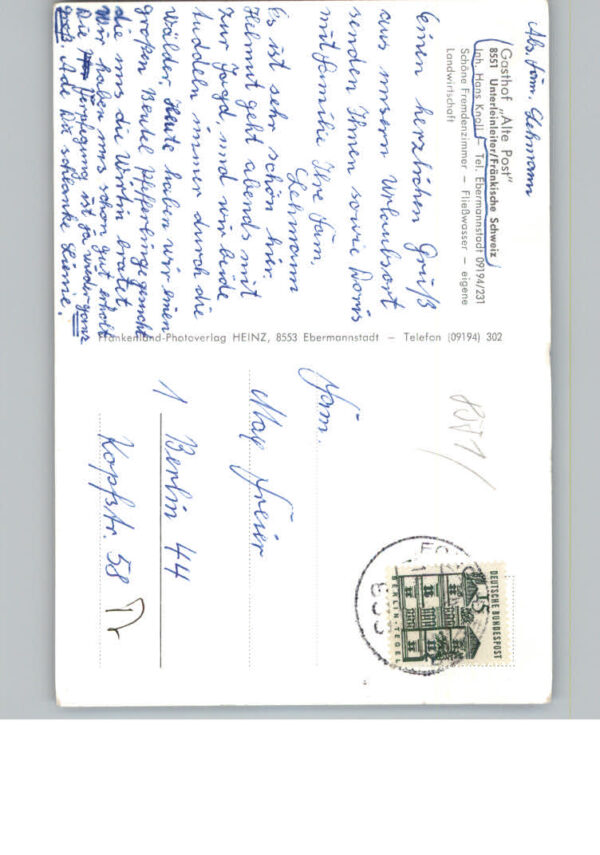 Abs. Fam. Lehmann
Gasthof „Alte Post"
8551 Unterleinleiter/Fränkische Schweiz
Inh. Hans Knoll – Tel. Ebermannstadt 09194/231
Schöne Fremdenzimmer – Fließwasser – eigene
Landwirtschaft
Einen herzlichen Gruß
aus unserm Urlaubsort
senden Ihnen sowie Doris
mit Familie Ihre Fam.
Lehmann
Es ist sehr schön hier.
Helmut geht abends mit
zur Jagd, und wir beide
buddeln immer durch die
Wälder. Heute haben wir einen
großen Beutel Pfifferlinge gesucht
die uns die Wirtin bratet.
Wir haben uns schon gut erholt
Die Verpflegung ist ja wieder ganz
groß. Ade Du schlanke Linie.
Frankenland-Photoverlag HEINZ, 8553 Ebermannstadt – Telefon (09194) 302
8551
DEUTSCHE BUNDESPOST
15
BERLIN-TEGEL
Fam.
Max Freier
1 Berlin 44
Kopfstr. 58